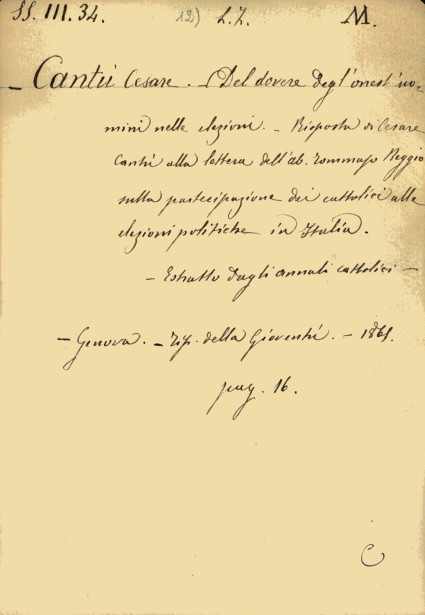 SS. III. 34. 12) L.L. M.
– Cantù Cesare. – Del dovere degl'onest'uo-
mini nelle elezioni. – Risposta di Cesare
Cantù alla lettera dell'ab. Tommaso Reggio
sulla partecipazione dei cattolici alle
elezioni politiche in Italia.
– Estratto dagli annali cattolici –
– Genova. – Tip. della Gioventù. – 1865.
pag. 16.
C